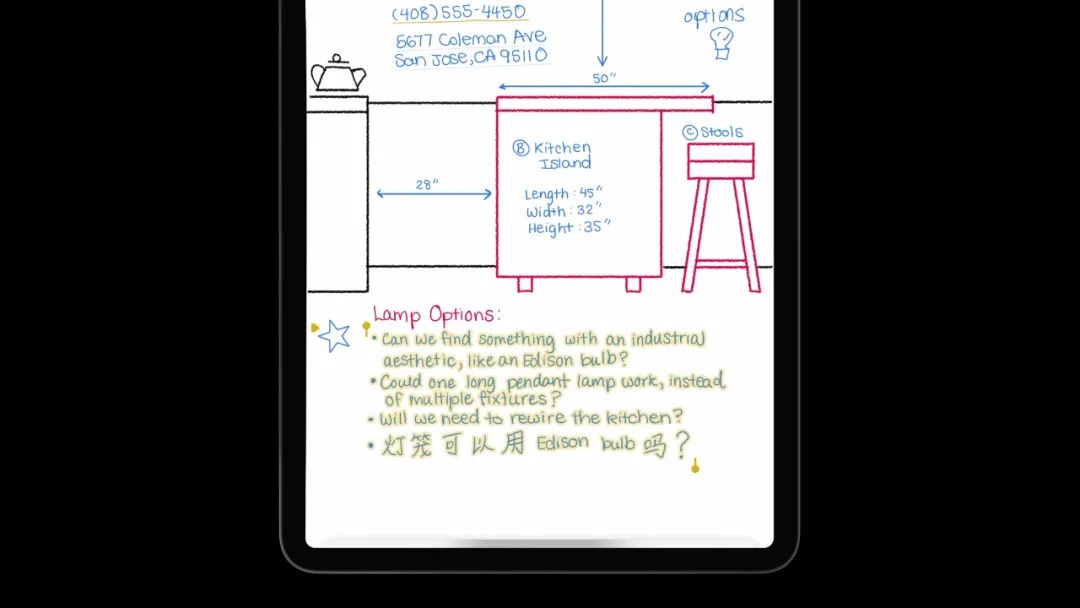 (408)555-4450
options
5677 Coleman Ave
San Jose, CA 95110
50"
Ⓒ Stools
Ⓑ Kitchen
Island
28"
Length: 45"
Width: 32"
Height: 35"
Lamp Options:
• Can we find something with an industrial
aesthetic, like an Edison bulb?
• Could one long pendant lamp work, instead
of multiple fixtures?
• Will we need to rewire the kitchen?
• 灯笼可以用 Edison bulb 吗?